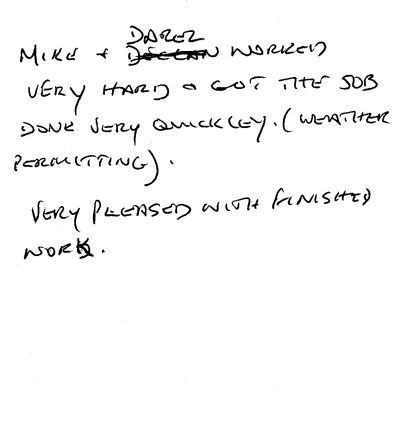 DAREL
MIKE + DECLAN WORKED
VERY HARD & GOT THE JOB
DONE VERY QUICKLEY. (WEATHER
PERMITTING).
VERY PLEASED WITH FINISHED
WORK.